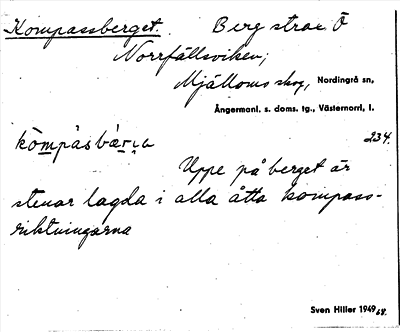 Kompassberget. Berg strax Ö
Norrfällsviken;
Mjälloms skog, Nordingrå sn,
Ångermanl. s. doms. tg., Västernorrl. l.
kòmpàsbær̥i̯a 234.
Uppe på berget är
stenar lagda i alla åtta kompass-
riktningarna
Sven Hiller 1949, 68.